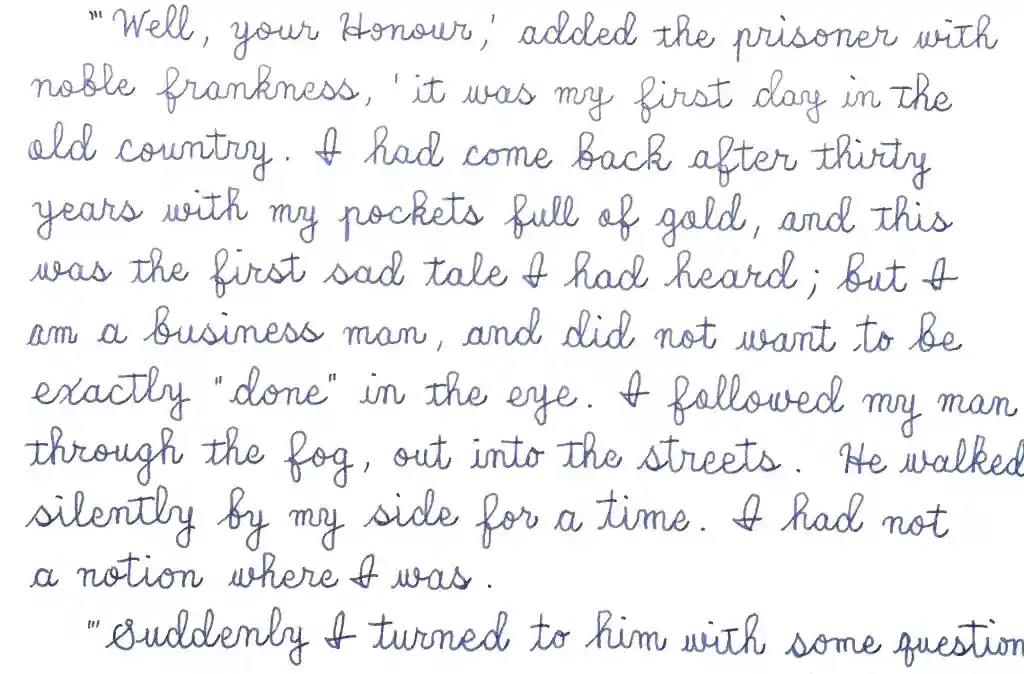 "'Well, your Honour,' added the prisoner with
noble frankness, 'it was my first day in the
old country. I had come back after thirty
years with my pockets full of gold, and this
was the first sad tale I had heard; but I
am a business man, and did not want to be
exactly "done" in the eye. I followed my man
through the fog, out into the streets. He walked
silently by my side for a time. I had not
a notion where I was.
"'Suddenly I turned to him with some question